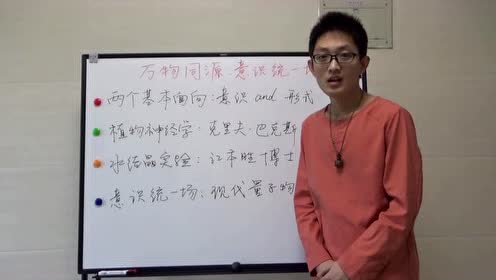 万物同源 意识统一
两个基本面向：意识 and 形式
植物神经学：克里夫·巴克斯
水结晶实验：江本胜博士
意识统一场：现代量子物